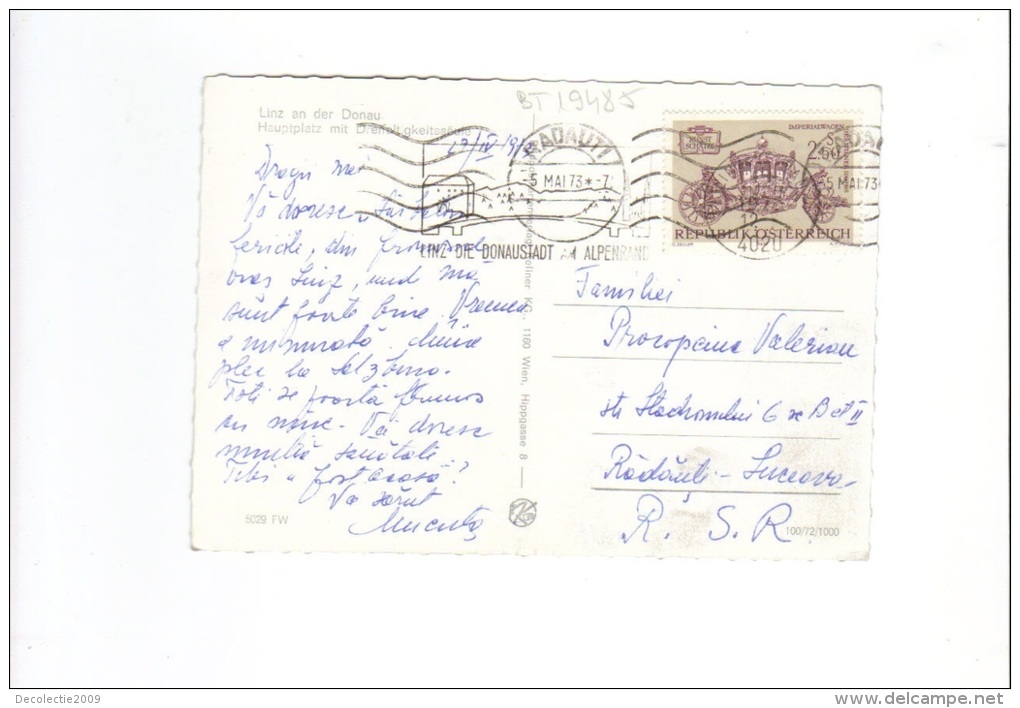 BT 19485
Linz an der Donau
Hauptplatz mit Dreifaltigkeitssäule
IV
Dragii mei
Vă doresc
fericite, din frumosul
oraș Linz, unde mă
simt foarte bine. Vremea
e minunată. Mîine
plec la
Toți se poartă frumos
cu mine. Vă doresc
multă sănătate.
Tibi a fost acasă?
Vă sărut
5029 FW
1160 Wien, Hippgasse 8
RADAUTI
-5 MAI 73 * -7
LINZ DIE DONAUSTADT AM ALPENRAND
IMPERIALWAGEN
KUNST SCHÄTZE
REPUBLIK ÖSTERREICH
-5 MAI 73
4020
Familiei
Procopciuc Valerian
str
Rădăuți - Suceava
R. S. R.
100/72/1000
Decolectie2009
www.delcampe.net